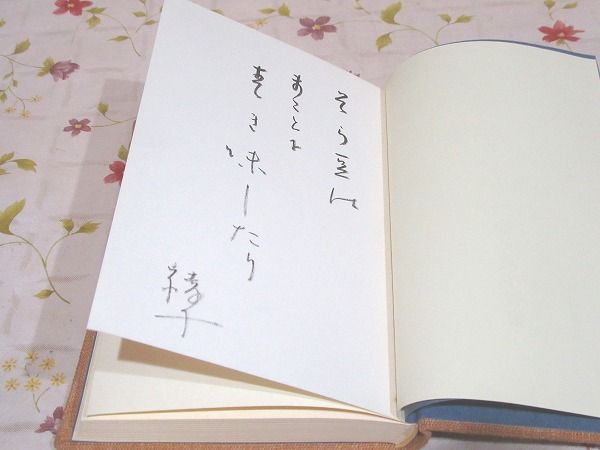 そら豆は
まことに
青き味したり
綾子